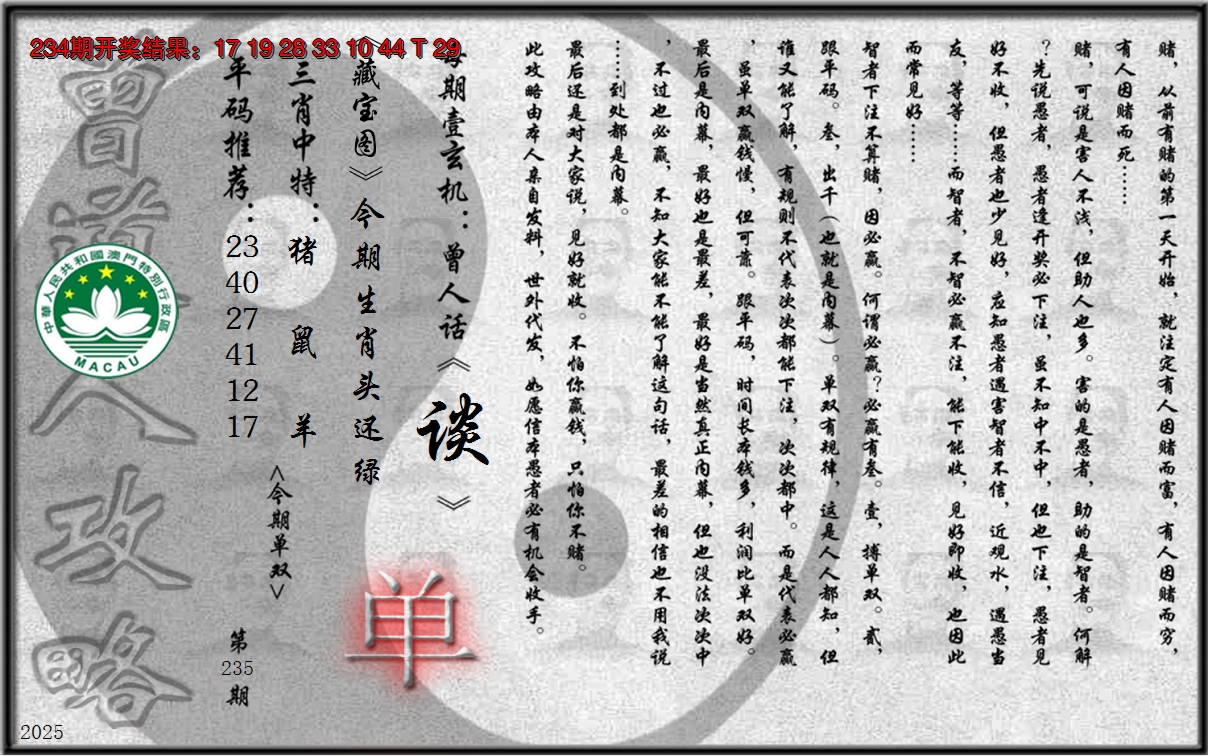 234期开奖结果：17 19 28 33 10 44 T 29
赌，从前有赌的第一天开始，就注定有人因赌而富，有人因赌而穷，
有人因赌而死……
赌，可说是害人不浅，但助人也多。害的是愚者，助的是智者。何解
？先说愚者，愚者逢开奖必下注，虽不知中不中，但也下注，愚者见
好不收，但愚者也少见好，应知愚者遇害智者不信，近观水，遇愚当
友，等等……而智者，不智必赢不注，能下能收，见好即收，也因此
而常见好……
智者下注不算赌，因必赢。何谓必赢？必赢有叁。壹，搏单双。贰，
跟平码。叁，出千（也就是内幕）。单双有规律，这是人人都知，但
谁又能了解，有规则不代表次次都能下注，次次都中。而是代表必赢
，虽单双赢钱慢，但可靠。跟平码，时间长本钱多，利润比单双好。
最后是内幕，最好也是最差，最好是当然真正内幕，但也没法次次中
，不过也必赢，不知大家能不能了解这句话，最差的相信也不用我说
……到处都是内幕。
最后还是对大家说，见好就收。不怕你赢钱，只怕你不赌。
此攻略由本人亲自发料，世外代发，如愿信本愚者必有机会收手。
每期壹玄机：曾人话《谈》
《藏宝图》今期生肖头还绿
单
三肖中特：猪 鼠 羊
<今期单双>
平码推荐：23 40 27 41 12 17
第235期
曾道人攻略
中華人民共和國澳門特別行政區
MACAU
2025